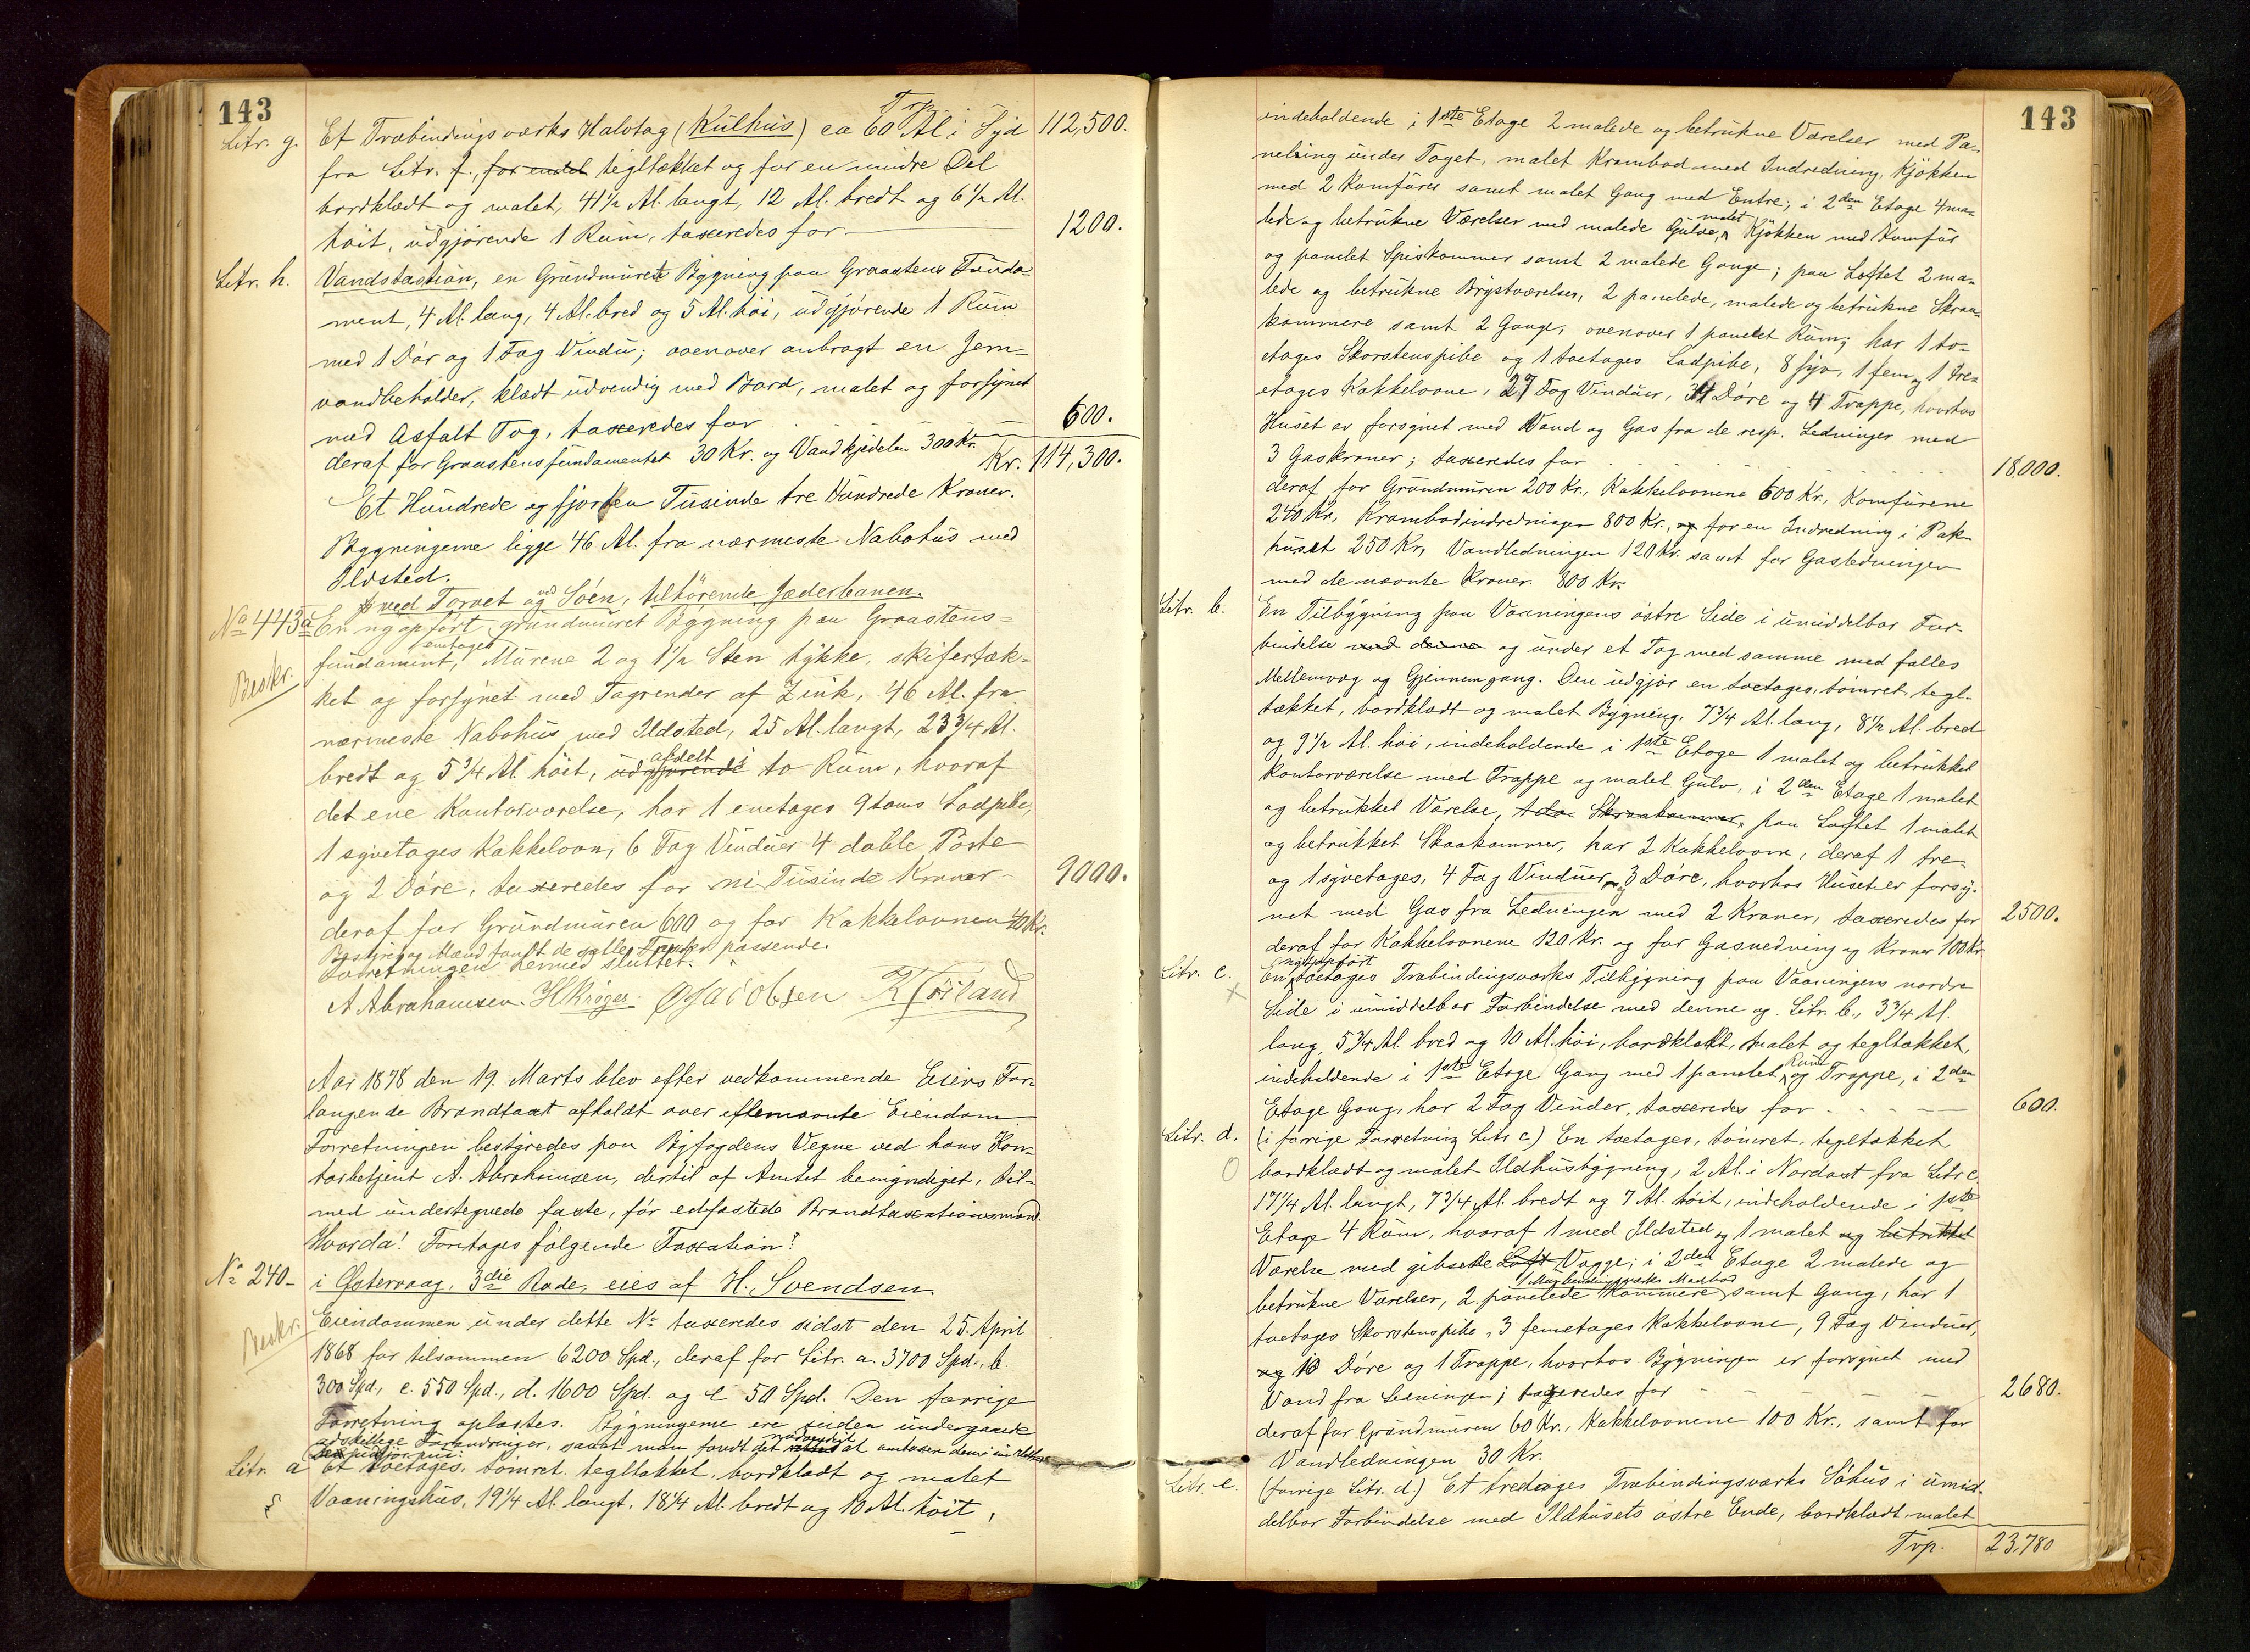 143
Trp. 112,500.
Litr. g. Et Træbindingsværks Halvtag (Kulhus) ca 60 Al i Syd
fra Litr. f., for endel tegltækket og for en mindre Del
bordklædt og malet, 41½ Al. langt, 12 Al. bredt og 6½ Al.
høit, udgjørende 1 Rum, taxeredes for 1200.
Litr. h. Vandstastion, en Grundmuret Bygning paa Graastens Funda-
ment, 4 Al. lang, 4 Al. bred og 5 Al. høi, udgjørende 1 Rum
med 1 Dør og 1 Fag Vindu; ovenover anbragt en Jern-
vandbeholder, klædt udvendig med Bord, malet og forsynet
med Asfalt Tag, taxeredes for 600.
deraf for Graastensfundamentet 30 Kr. og Vandkjedelen 300 Kr.
Kr. 114,300.
Et Hundrede og fjorten Tusinde tre Hundrede Kroner.
Bygningerne ligge 46 Al. fra nærmeste Nabohus med
Ildsted.
ved Torvet og ved Søen, tilhørende Jæderbanen.
No 443a En nyopført grundmuret Bygning paa Graastens-
Beskr. fundament, enetages Murene 2 og 1½ Sten tykke, skifertæk-
ket og forsynet med Tagrender af Zink, 46 Al. fra
nærmeste Nabohus med Ildsted, 25 Al. langt, 23¾ Al.
bredt og 5¾ Al. høit, udgjørende afdelt i to Rum, hvoraf
det ene Kontorværelse, har 1 enetages 9toms Lodpibe,
1 syvetages Kakkelovn, 6 Fag Vinduer 4 doble Porte
og 2 Døre, taxeredes for ni Tusinde Kroner 9000.
deraf for Grundmuren 600 og for Kakkelovnen 40 Kr.
Bestyrer og Mænd fandt de satte passende.
Forretningen hermed sluttet.
A Abrahamsen. H Krøger. O Jacobsen K
Aar 1878 den 19. Marts blev efter vedkommende Eiers For-
langende Brandtaxt afholdt over efternævnte Eiendom
Forretningen bestyredes paa Byfogdens Vegne ved hans Kon-
torbetjent A. Abrahamsen, dertil af Amtet bemyndiget, til-
med undertegnede faste, før edfæstede Brandtaxationsmænd.
Hvorda! Foretages følgende Taxation:
No 240- i Østervaag, 3die Rode, eies af H. Svendsen.
Beskr. Eiendommen under dette No taxeredes sidst den 25. April
1868 for tilsammen 6200 Spd., deraf for Litr. a. 3700 Spd., b.
300 Spd., c. 550 Spd., d. 1600 Spd. og e 50 Spd. Den forrige
Forretning oplæstes. Bygningerne ere siden undergaaede
adskillige Forandringer, samt man fandt det nødvendigt at ombesere dem i sin Helhed
Litr. a Et toetages, tømret, tegltækket, bordklædt og malet
Vaaningshus, 19¼ Al. langt, 18¼ Al. bredt og 10 Al. høit,
143
indeholdende i 1ste Etage 2 malede og betrukne Værelser med Pa-
neling under Taget, malet Krambod med Indredning, Kjøkken
med 2 Komfurer samt malet Gang med Entre; i 2den Etage 4 ma-
lede og betrukne Værelser med malede Gulve, malet Kjøkken med Komfur
og panelet Spiskammer samt 2 malede Gange; paa Loftet 2 ma-
lede og betrukne Brystværelser, 2 panelede, malede og betrukne Skraa-
kammere samt 2 Gange, ovenover 1 panelet Rum; har 1 to-
etages Skorstenspibe og 1 toetages Lodpibe, 8 syv, 1 fem og 1 tre-
etages Kakkelovne, 27 Fag Vinduer, 34 Døre og 4 Trappe, hvorhos
Huset er forsynet med Vand og Gas fra de resp. Ledninger med
3 Gaskraner; taxeredes for 18,000.
deraf for Grundmuren 200 Kr., Kakkelovnene 600 Kr., Komfurene
240 Kr., Krambodindredningen 800 Kr., og for en Indredning i Pak-
huset 250 Kr, Vandledningen 120 Kr. samt for Gasledningen
med de nævnte Kraner 800 Kr.
Litr. b. En Tilbygning paa Vaaningens østre Side i umiddelbar For-
bindelse med denne og under et Tag med samme med fælles
Mellemvæg og Gjennemgang. Den udgjør en toetages, tømret, tegl-
tækket, bordklædt og malet Bygning, 7¾ Al. lang, 8½ Al. bred
og 9½ Al. høi, indeholdende i 1ste Etage 1 malet og betrukket
Kontorværelse med Trappe og malet Gulv, i 2den Etage 1 malet
og betrukket Værelse, 1 do. Skraakammer, paa Loftet 1 malet
og betrukket Skaakammer, har 2 Kakkelovne, deraf 1 tre
og 1 syvetages, 4 Fag Vinduer og 3 Døre, hvorhos Huset er forsy-
net med Gas fra Ledningen med 2 Kraner, taxeredes for 2500.
deraf for Kakkelovnene 120 Kr. og for Gasnedning og Kraner 100 Kr.
Litr. c. En nyopført toetages Træbindingsværks Tilbygning paa Vaaningens nordre
Side i umiddelbar Forbindelse med denne og Litr. b., 3¾ Al.
lang, 5¾ Al. bred og 10 Al. høi, bordklædt, malet og tegltækket,
indeholdende i 1ste Etage Gang med 1 panelet Rum og Trappe, i 2den
Etage Gang, har 2 Fag Vinder, taxeredes for 600.
Litr. d. (i forrige Forretning Litr c) En toetages, tømret, tegltækket
bordklædt og malet Ildhusbygning, 2 Al. i Nordost fra Litr c,
17¼ Al. langt, 7¾ Al. bredt og 7 Al. høit, indeholdende i 1ste
Etage 4 Rum, hvoraf 1 med Ildsted og 1 malet og betrukket
Værelse med gibsede Loft Vægge; i 2den Etage 2 malede og
betrukne Værelser, 2 panelede Kammere samt Gang, har 1
toetages Skorstenspibe, 3 femetages Kakkelovne, 9 Fag Vinduer,
og 10 Døre og 1 Trappe, hvorhos Bygningen er forsynet med
Vand fra Ledningen; taxeredes for 2680.
deraf for Grundmuren 60 Kr., Kakkelovnene 100 Kr., samt for
Vandledningen 30 Kr.
Litr. e. (forrige Litr. d.) Et tredages Træbindingsværks Søhus i umid-
delbar Forbindelse med Ildhusets østre Ende, bordklædt, malet
Trp. 23,780